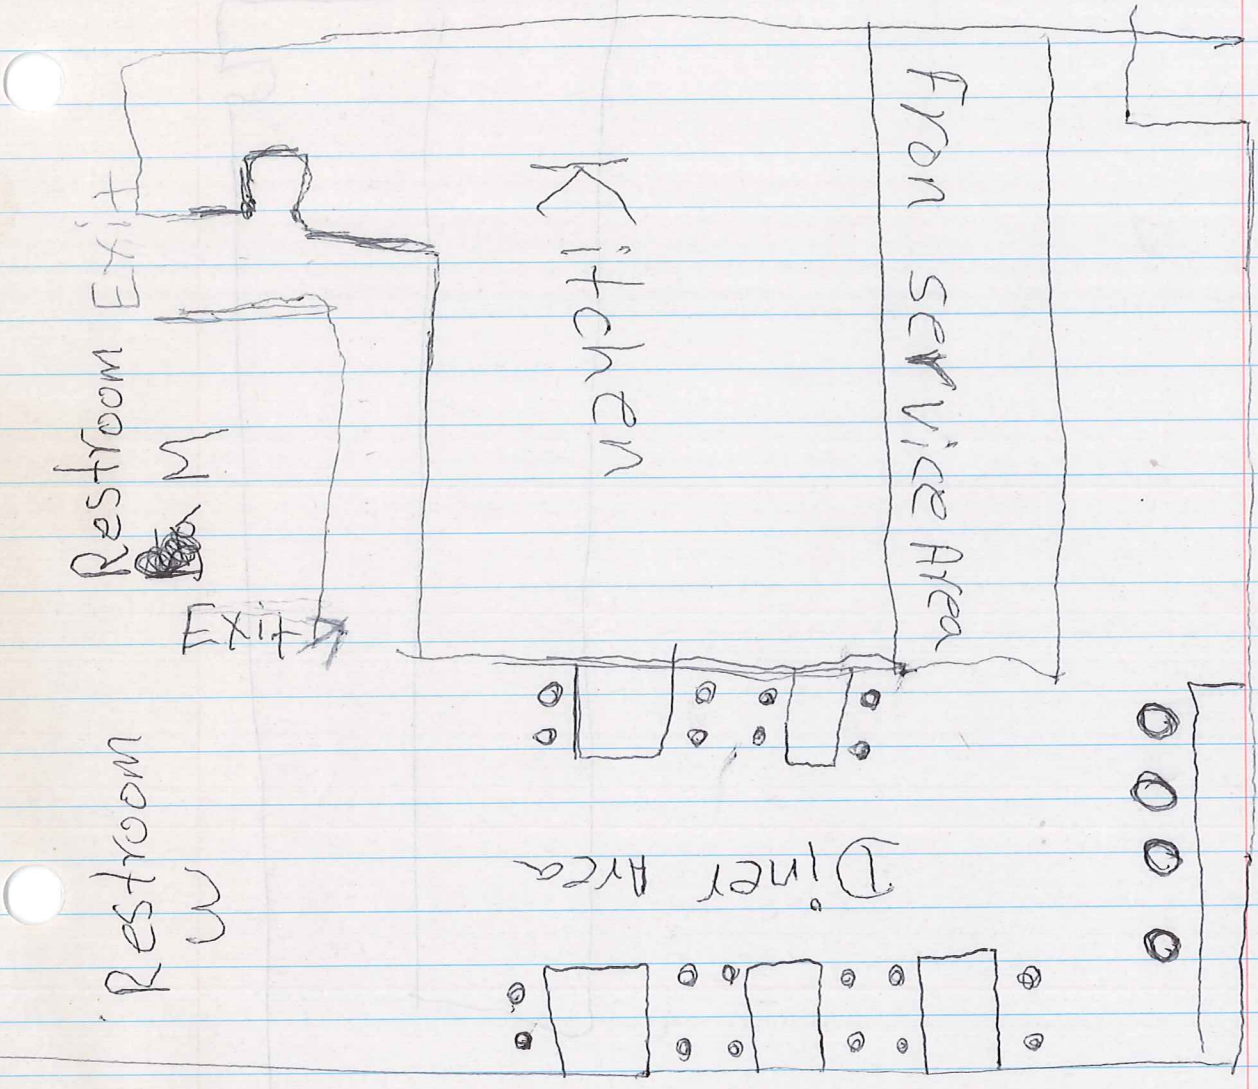 Fron service Area
Kitchen
Exit
Restroom
M
Exit
Restroom
W
Diner Area